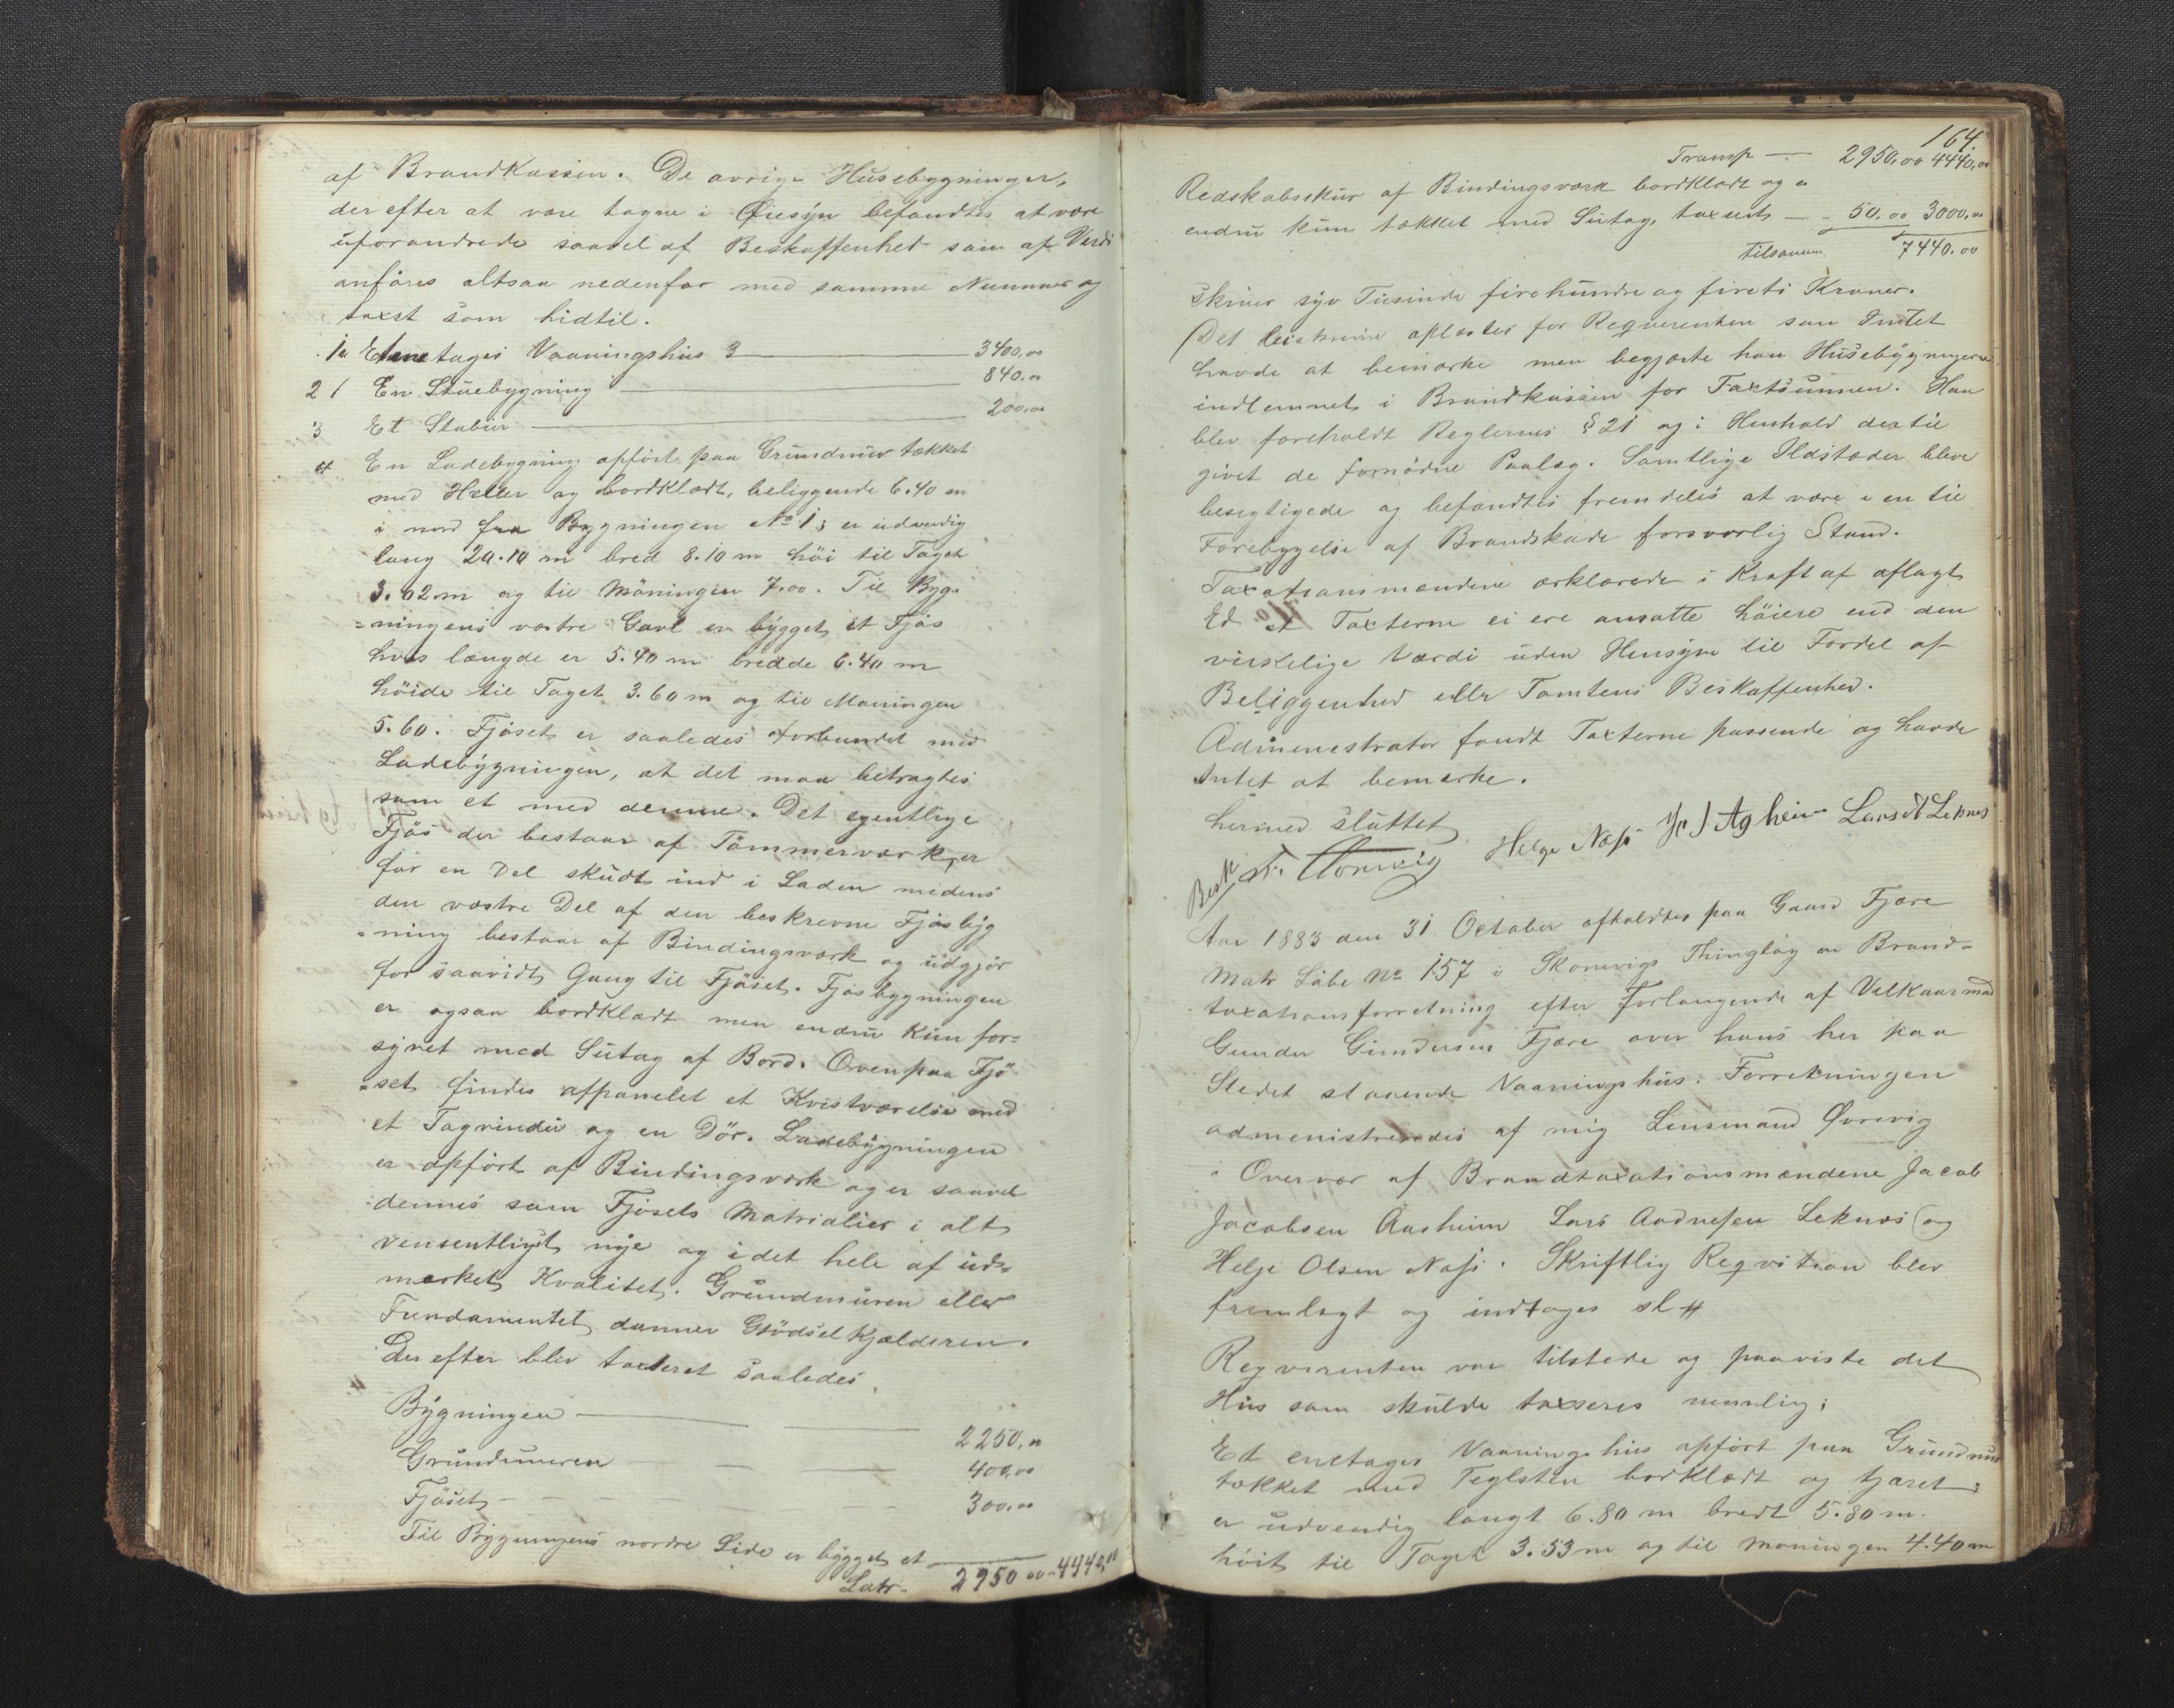 af Brandkassen. De øvrige Husebygninger,
der efter at være tagne i Øiesyn befandtes at være
uforandrede saavel af Beskaffenhed som af Verdi
anföres altsaa nedenfor med samme Nummer og
taxst som hidtil.
1a Et enetages Vaaningshus 3400,00
2 1 En Stuebygning 840.00
3 Et Stabur 200,00
4 En Ladebygning opfört paa Grundmur tækket
med Heller og bordklædt, beliggende 6.40 m
i nord fra Bygningen No 1; er udvendig
lang 20.10 m bred 8.10 m höi til Taget
3.02 m og til Möningen 7.00. Til Byg-
=ningens vestre Gavl er bygget et Fjös
hvis længde er 5.40 m bredde 6.40 m
höide til Taget 3.60 m og til Maningen
5.60. Fjöset er saaledes forbundet med
Ladebygningen, at det maa betragtes
som et med denne. Det egentlige
Fjös der bestaar af Tömmerværk, er
för en Del skudt ind i Laden medens
den vestre Del af den beskrevne Fjösbyg
=ning bestaar af Bindingsværk og udgjör
for saavidt Gang til Fjöset. Fjösbygningen
er ogsaa bordklædt men endnu kun for=
synet med Sutag af Bord. Ovenpaa Fjö
=set findes afpanelet et Kvistværelse med
et Tagvindu og en Dör. Ladebygningen
er opfört af Bindingsværk og er saavel
dennes som Fjösets Matrialier i alt
vensentligst nye og i det hele af ud=
mærket Kvalitet. Grundmuren eller
Fundamentet danner Gjödselkjælderen.
Derefter blev taxseret saaledes
Bygningen 2250,00
Grundmuren 400,00
Fjöset 300,00
Til Bygningens nordre Side er bygget et
Latr. 2950 00 4440,00
164.
Transp 2950,00 4440,00
Redskabsskur af Bindingsværk bordklædt og er
endnu kun tækket med Sutag, taxseret 50.00 3000,00
tilsammen 7440.00
skriver syv Tusinde firehundre og fireti Kroner.
Det beskrevne oplæstes for Reqverenten som Intet
havde at bemærke men begjærte han Husebygningerne
indlemmet i Brandkassen for Taxtsummen. Han
blev foreholdt Reglernes § 21 og i Henhold dertil
givet de fornödne Paalæg. Samtlige Ildstæder bleve
besigtigede og befandtes fremdeles at være i en til
Forebyggelse af Brandskade forsvarlig Stand.
Taxationsmændene erklærede i Kraft af aflagt
Ed at Taxterne ei ere ansatte höiere end den
virkelige Værdi uden Hensyn til Fordel af
Beliggenhed eller Tomtens Beskaffenhed.
Administrator fandt Taxterne passende og havde
Intet at bemærke.
hermed sluttet
Helge Næss J. J. Aaheim Lars A Leknes
Aar 1883 den 31 October afholdtes paa Gaard Fjære
Matr Löbe No 157 i Skonevigs Thinglag en Brand=
taxationsforretning efter Forlangende af Velkaarmand
Gunder Gundersen Fjære over hans her paa
Stedet staaende Vaaningshus. Forretningen
administreredes af mig Lensmand Qvrevig
i Overvær af Brandtaxationsmændene Jacob
Jacobsen Aasheim Lars Andnesen Leknæs og
Helje Olsen Næss. Skriftlig Reqvition blev
fremlagt og indtages sl #
Reqvirenten var tilstede og paaviste det
Hus som skulde taxseres nemlig:
Et enetages Vaaningshus opfört paa Grundmur
tækket med Teglsten bordklædt og tjæret;
er udvendig langt 6.80 m bredt 5.80 m.
höit til Taget 3.53 m og til Moningen 4.40 m